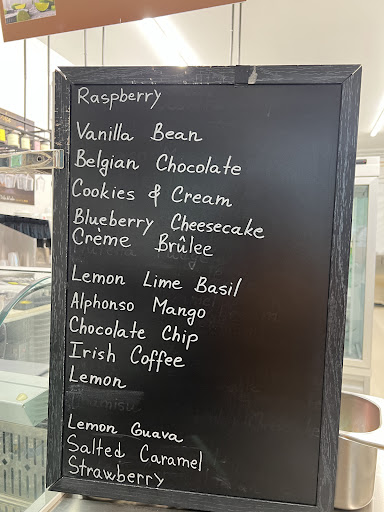 Raspberry
Vanilla Bean
Belgian Chocolate
Cookies & Cream
Blueberry Cheesecake
Crème Brûlée
Lemon Lime Basil
Alphonso Mango
Chocolate Chip
Irish Coffee
Lemon
Lemon Guava
Salted Caramel
Strawberry